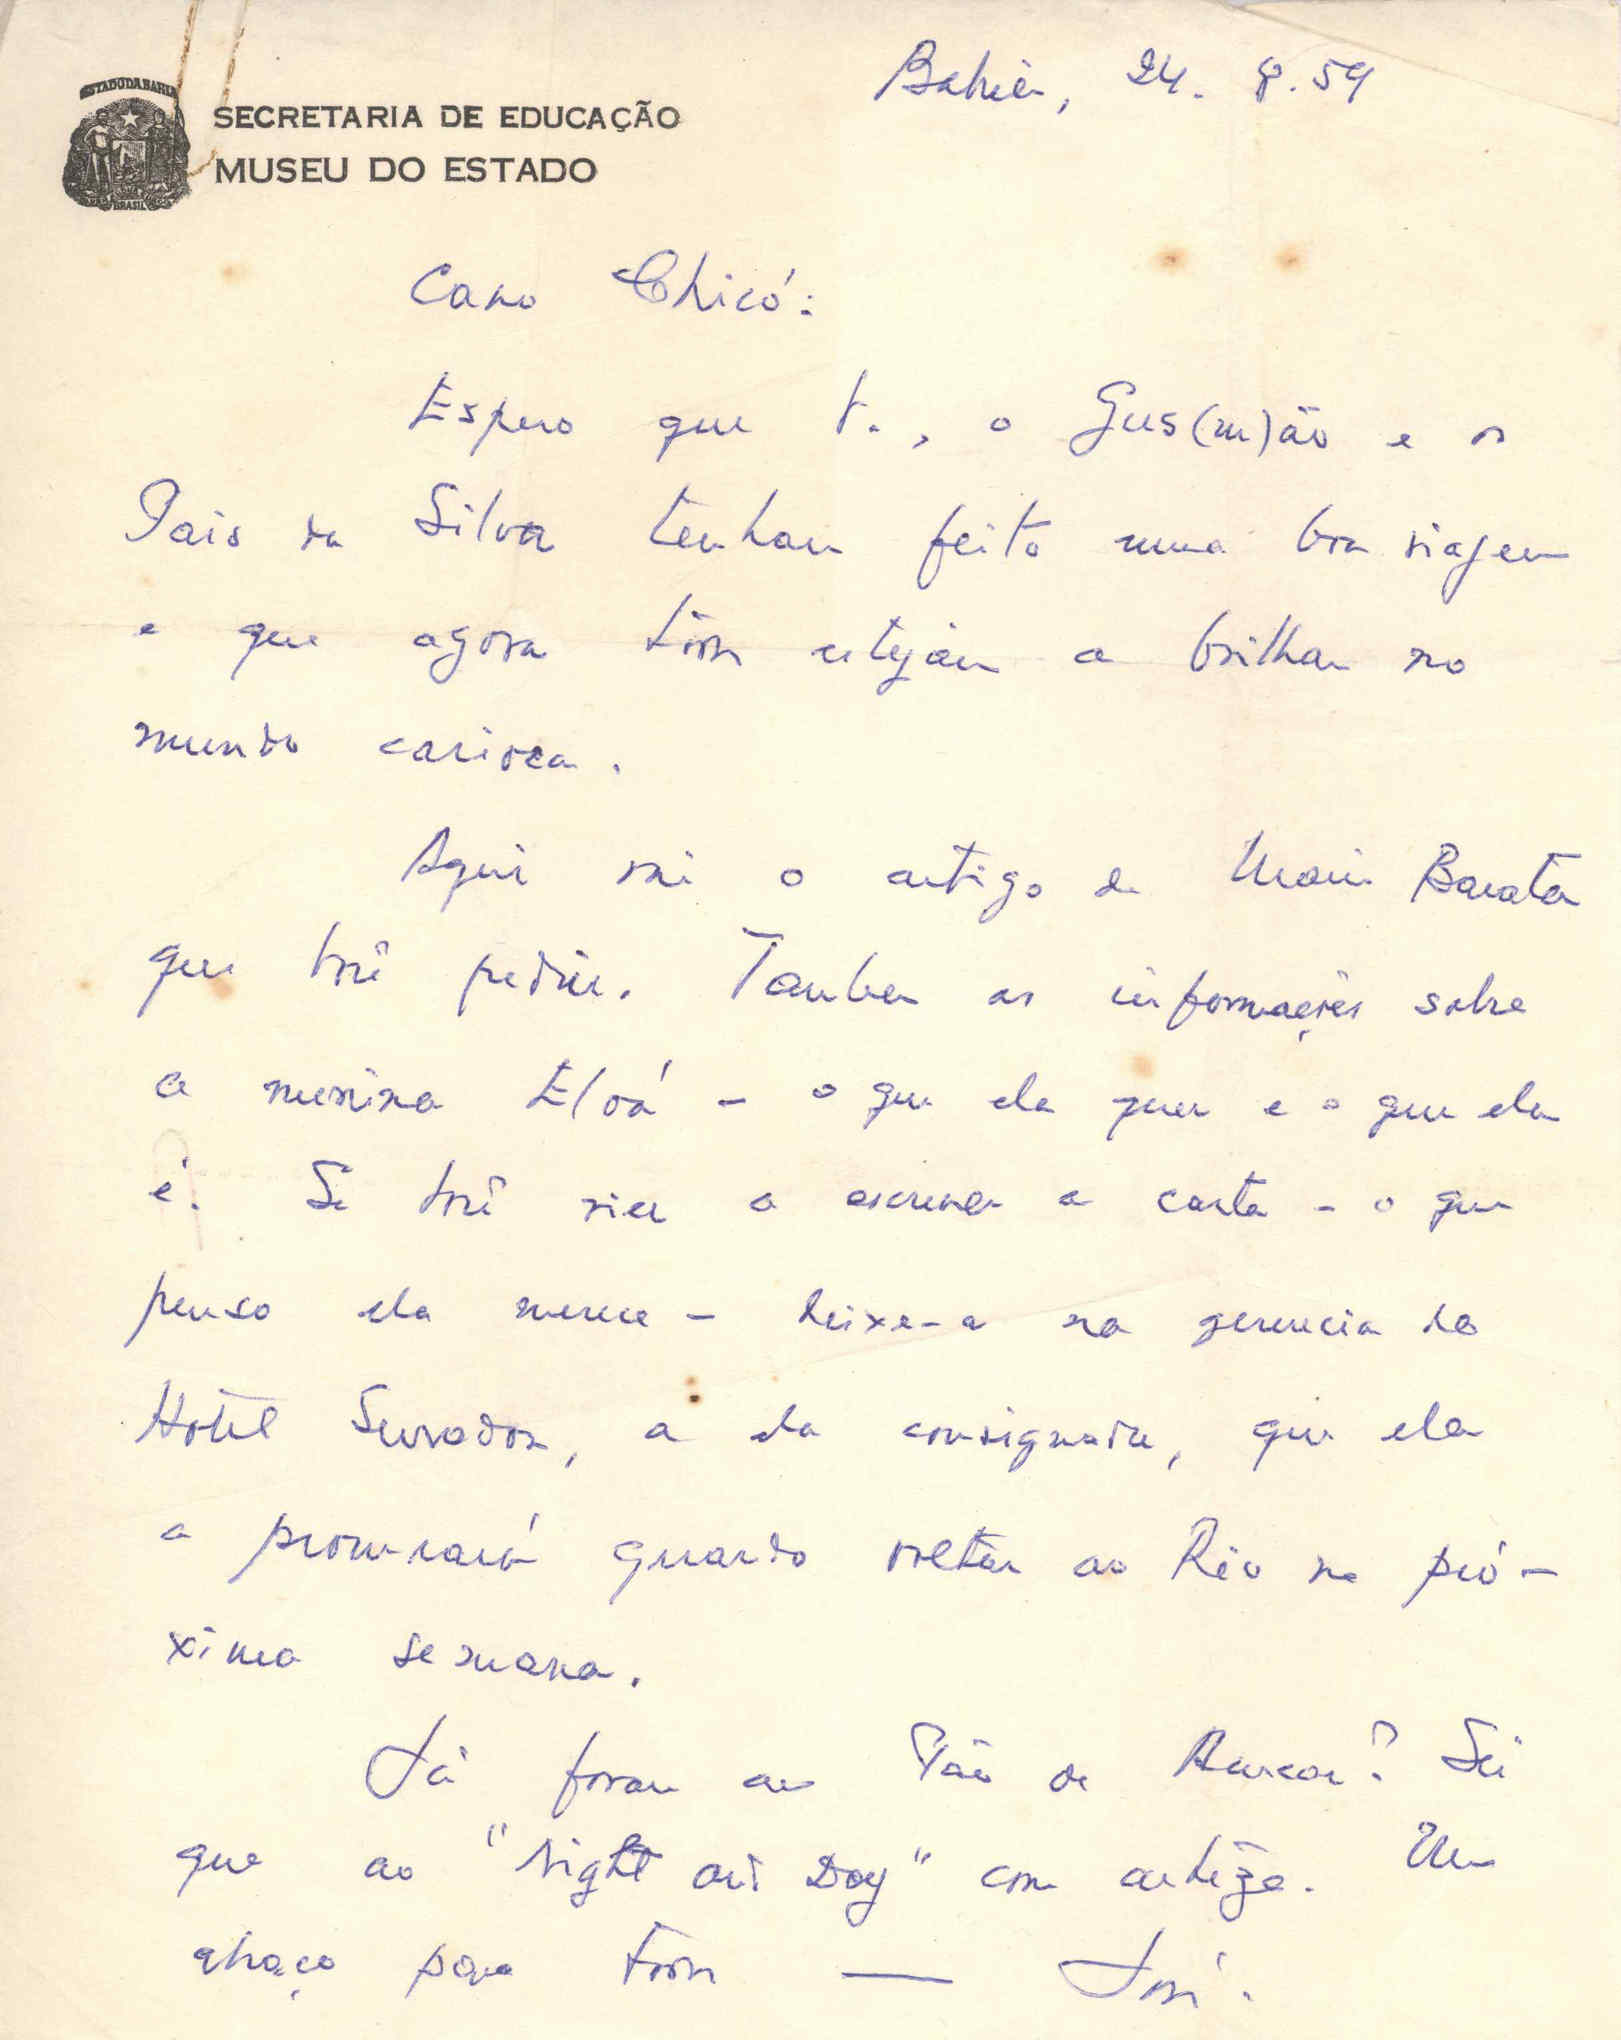 Bahia, 24. 8. 59
ESTADO DA BAHIA
SECRETARIA DE EDUCAÇÃO
MUSEU DO ESTADO
BRASIL
Caro Chicó:
Espero que V., o Gus(m)ão e os
Pais da Silva tenham feito uma boa viagem
e que agora todos estejam a brilhar no
mundo carioca.
Aqui vai o artigo de Mario Barata
que você pediu. Tambem as informações sobre
a menina Eloá - o que ela quer e o que ela
é. Se você vier a escrever a carta - o que
penso ela merece - deixe-a na gerencia do
Hotel Serrador, a ela consignada, que ela
a procurará quando voltar ao Rio na pró-
xima semana.
Já foram ao Pão de Assucar? Sei
que ao "Night and Day" com certeza. Um
abraço para todos — José.